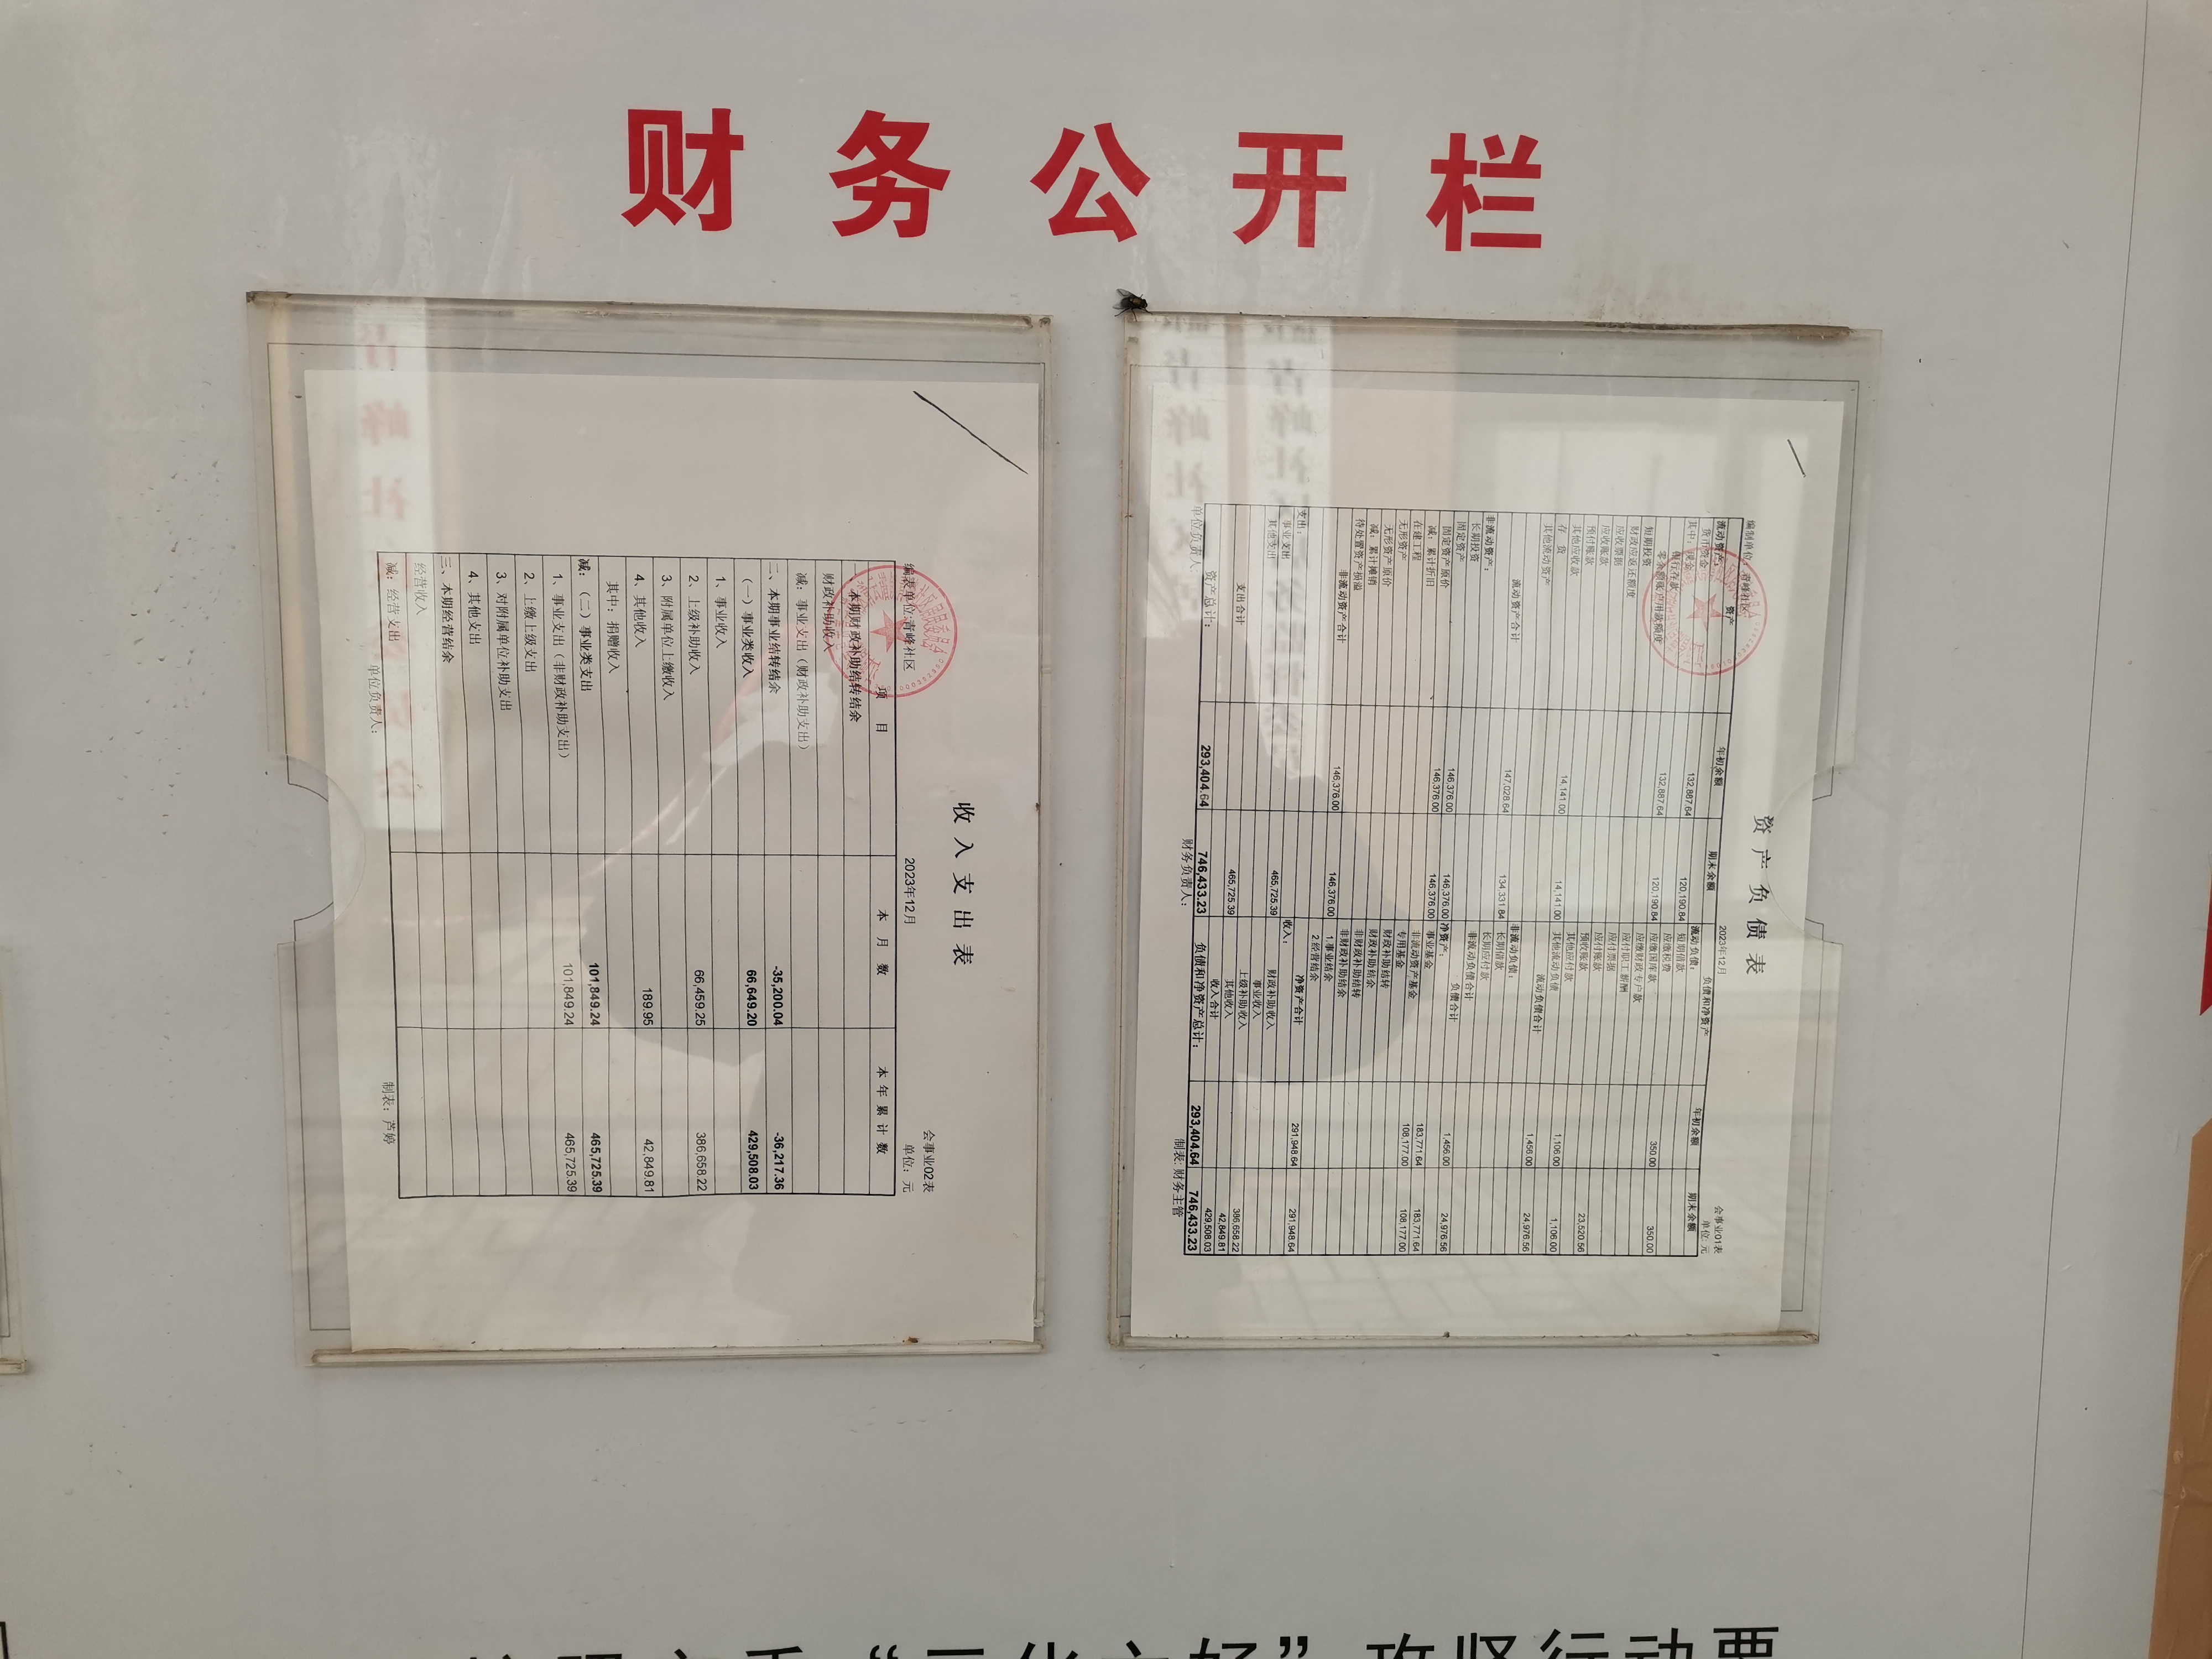 财务公开栏
收入支出表
会事业02表
编表单位:青峰社区 2023年12月 单位：元
项 目 本 月 数 本 年 累 计 数
一、本期财政补助结转结余
财政补助收入
减：事业支出（财政补助支出）
二、本期事业结转结余 -35,200.04 -36,217.36
（一）事业类收入 66,649.20 429,508.03
1、事业收入
2、上级补助收入 66,459.25 386,658.22
3、附属单位上缴收入
4、其他收入 189.95 42,849.81
其中：捐赠收入
减：（二）事业类支出 101,849.24 465,725.39
1、事业支出（非财政补助支出） 101,849.24 465,725.39
2、上缴上级支出
3、对附属单位补助支出
4、其他支出
三、本期经营结余
经营收入
减：经营支出
单位负责人： 制表：芦婷
资产负债表
会事业01表
编制单位：青峰社区 2023年12月 单位:元
资产 年初余额 期末余额 负债和净资产 年初余额 期末余额
流动资产： 流动负债：
货币资金 132,887.64 120,190.84 短期借款
其中：现金 应缴税费
银行存款 132,887.64 120,190.84 应缴国库款 350.00 350.00
零余额账户用款额度 应缴财政专户款
短期投资 应付职工薪酬
财政应返还额度 应付票据
应收票据 应付账款
应收账款 预收账款
预付账款 其他应付款 23,520.56
其他应收款 14,141.00 14,141.00 其他流动负债 1,106.00 1,106.00
存 货
其他流动资产 流动负债合计 1,456.00 24,976.56
流动资产合计 147,028.64 134,331.84 非流动负债：
非流动资产： 长期借款
长期投资 长期应付款
固定资产 非流动负债合计
固定资产原价 146,376.00 146,376.00 负债合计 1,456.00 24,976.56
减：累计折旧 146,376.00 146,376.00 净资产：
在建工程 事业基金 183,771.64 183,771.64
无形资产 非流动资产基金 108,177.00 108,177.00
无形资产原价 专用基金
减：累计摊销 财政补助结转
待处置资产损溢 财政补助结余
非流动资产合计 146,376.00 146,376.00 非财政补助结转
非财政补助结余
1.事业结余
2.经营结余
支出： 净资产合计 291,948.64 291,948.64
事业支出 465,725.39 收入：
其他支出 财政补助收入
事业收入
支出合计 465,725.39 上级补助收入 386,658.22
其他收入 42,849.81
收入合计 429,508.03
资产总计： 293,404.64 746,433.23 负债和净资产总计： 293,404.64 746,433.23
单位负责人 财务负责人： 制表:财务主管
攻坚行动要